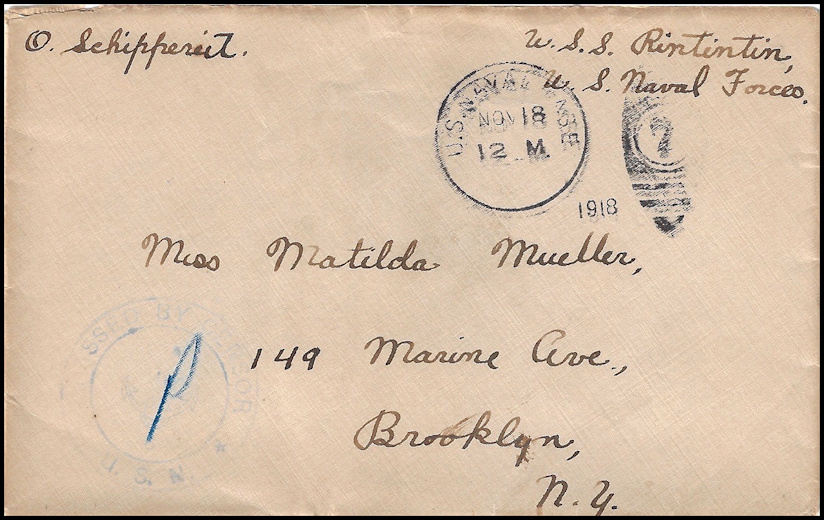 O. Schippereit.
U. S. S. Rintintin,
U. S. Naval Forces.
U.S. NAVAL BASE
NOV 18
12 M
1918
7
Miss Matilda Mueller,
149 Marine Ave.,
Brooklyn,
N. Y.
PASSED BY CENSOR
U.S.N.